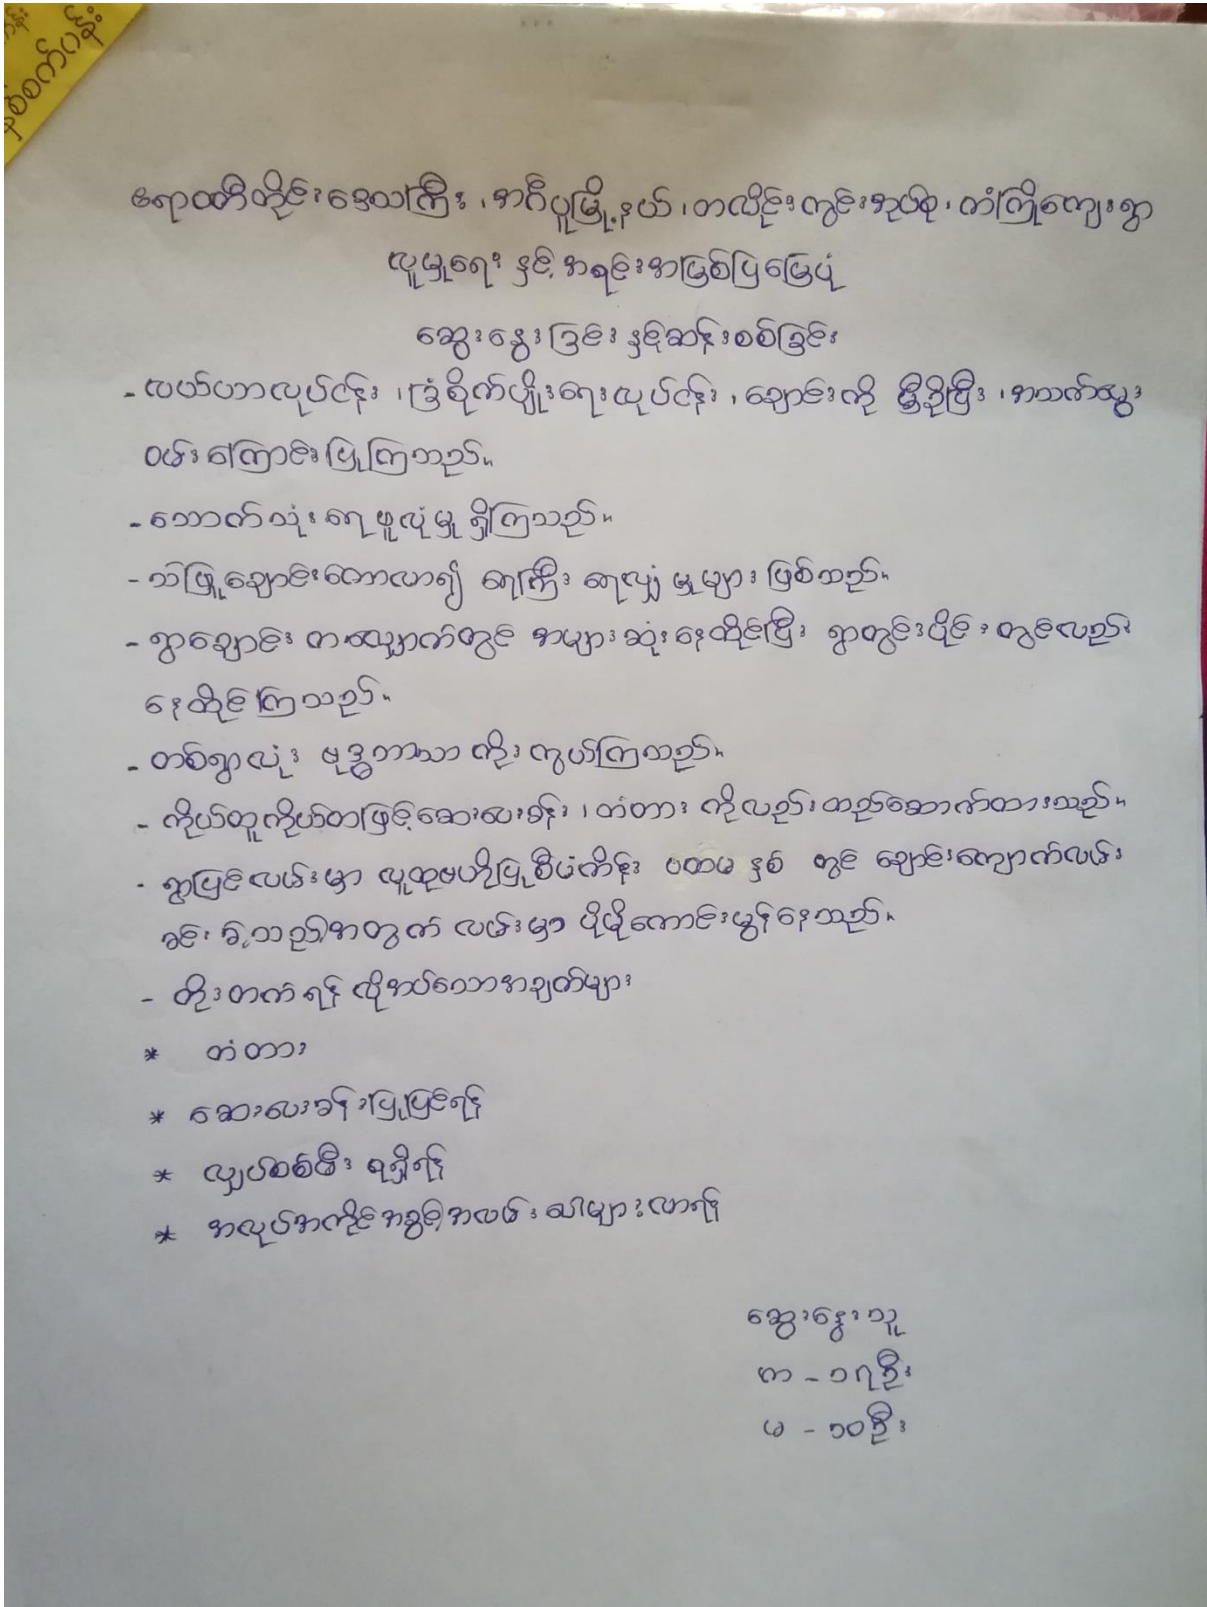 နှစ်စက်ပန်း
ဧရာဝတီတိုင်းဒေသကြီး ၊ အင်္ဂပူမြို့နယ် ၊ တလိုင်းကွင်းအုပ်စု ၊ ကံကြိုကျေးရွာ
လူမှုရေး နှင့် အရင်းအမြစ်ပြမြေပုံ
ဆွေးနွေးခြင်း နှင့်ဆန်းစစ်ခြင်း
- လယ်ယာလုပ်ငန်း ၊ ခြံစိုက်ပျိုးရေးလုပ်ငန်း ၊ ချောင်းကို မှီခိုပြီး ၊ အသက်မွေး
ဝမ်းကြောင်းပြုကြသည်။
- သောက်သုံးရေဖူလုံမှု ရှိကြသည်။
- သဲဖြူချောင်းကောလာ၍ ရေကြီး ရေလျှံ မှုများ ဖြစ်သည်။
- ရွာချောင်း တလျှောက်တွင် အများဆုံးနေထိုင်ပြီး ရွာတွင်းပိုင်းတွင်လည်း
နေထိုင်ကြသည်။
- တစ်ရွာလုံး ဗုဒ္ဓဘာသာ ကိုးကွယ်ကြသည်။
- ကိုယ်ထူကိုယ်ထဖြင့်ဆေးပေးခန်း ၊ တံတား ကိုလည်းတည်ဆောက်ထားသည်။
- ရွာပြင်လမ်းမှာ လူထုဗဟိုပြုစီမံကိန်း ပထမ နှစ် တွင် ချောင်းကျောက်လမ်း
ခင်း ခဲ့သည့်အတွက် လမ်းမှာ ပိုမိုကောင်းမွန်နေသည်။
- တိုးတက်ရန် လိုအပ်သောအချက်များ
* တံတား
* ဆေးပေးခန်းပြုပြင်ရန်
* လျှပ်စစ်မီး ရရှိရန်
* အလုပ်အကိုင်အခွင့်အလမ်းပေါများလာရန်
ဆွေးနွေးသူ
ကျား - ၁၇ဦး
မ - ၁၀ဦး